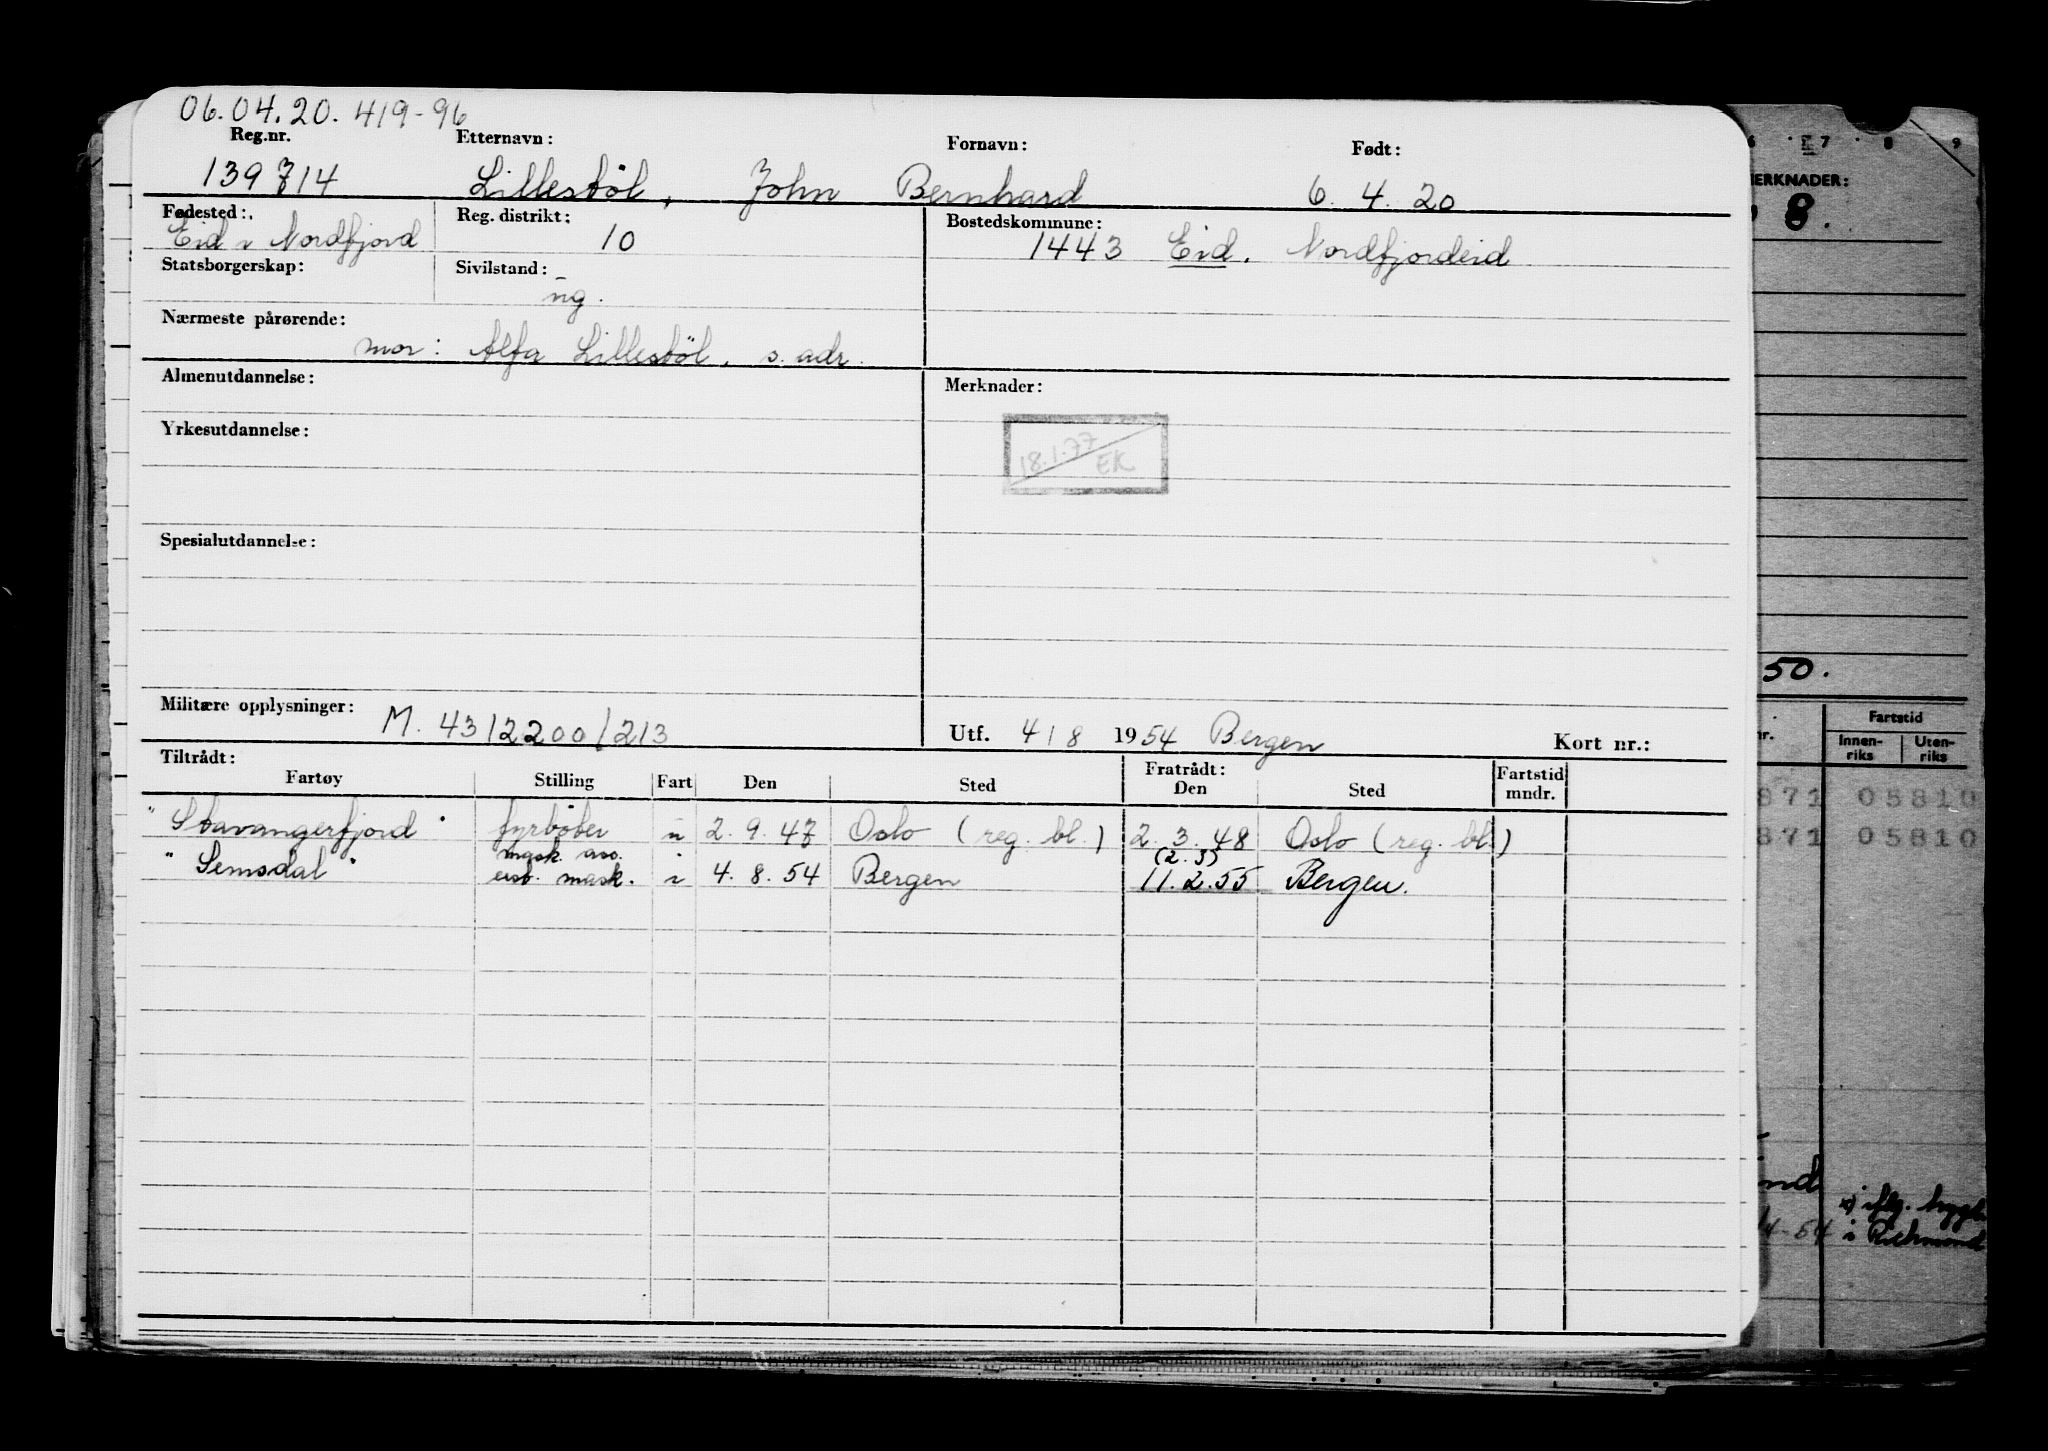 06.04.20. 419-96
Reg.nr. Etternavn: Fornavn: Født:
139714 Lillestöl, John Bernhard 6. 4. 20
Fødested: Reg. distrikt: Bostedskommune:
Eid i Nordfjord 10 1443 Eid. Nordfjordeid
Statsborgerskap: Sivilstand:
ug.
Nærmeste pårørende:
mor: Alfa Lillestöl, s. adr.
Almenutdannelse: Merknader:
18.1.77
EK
Yrkesutdannelse:
Spesialutdannelse:
Militære opplysninger: M. 43/2200/213 Utf. 4/8 1954 Bergen Kort nr.:
Tiltrådt: Fratrådt:
Fartøy Stilling Fart Den Sted Den Sted Fartstid mndr.
"Stavangerfjord" fyrböter u 2. 9. 47 Oslo (reg. bl.) 2. 3. 48 Oslo (reg. bl.)
mask. ass. (2. 3)
"Semsdal" eist. mask. i 4. 8. 54 Bergen 11. 2. 55 Bergen.
6 7 8 9
MERKNADER:
8.
50.
nr. Fartstid
Innen-riks Uten-riks
871 05810
871 05810
ond
4-54 i Richmond